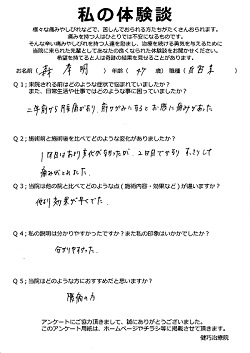 私の体験談
様々な痛みやしびれなどで、苦しんでおられる方たちがたくさんおられます。
痛みを持つ人はひとりでは不安になるものです。
そんな辛い痛みやしびれを持つ人達を励まし、治療を続ける勇気を与えるために
当院に来られた先輩としてあなたの良くなられた体験談をお聞かせください。
希望を持てると人は奇跡的結果を見せることがあります。
お名前（ 本 明 ） 年齢（ 47 歳）職種（ 自営業 ）
Q１；来院される前はどのような症状で悩まれていましたか？
また、日常生活や仕事ではどのような事に困っていましたか？
二年前から腰痛があり、前かがみになるとお腰に痛みがあった
Q２；施術前と施術後を比べてどのような変化がありましたか？
1回目はあまり変化がなかったが、2回目ですっきりして
痛みがとれた。
Q３；当院は他の院と比べてどのような点（施術内容・効果など）が違いますか？
他より効果が早くでた。
Q４；私の説明は分かりやすかったですか？また私の印象はいかがでしたか？
分かりやすかった。
Q５；当院はどのような方におすすめだと思いますか？
腰痛の方
アンケートにご協力頂きまして、誠にありがとうございました。
このアンケート用紙は、ホームページやチラシ等に掲載させて頂きます。
健巧治療院